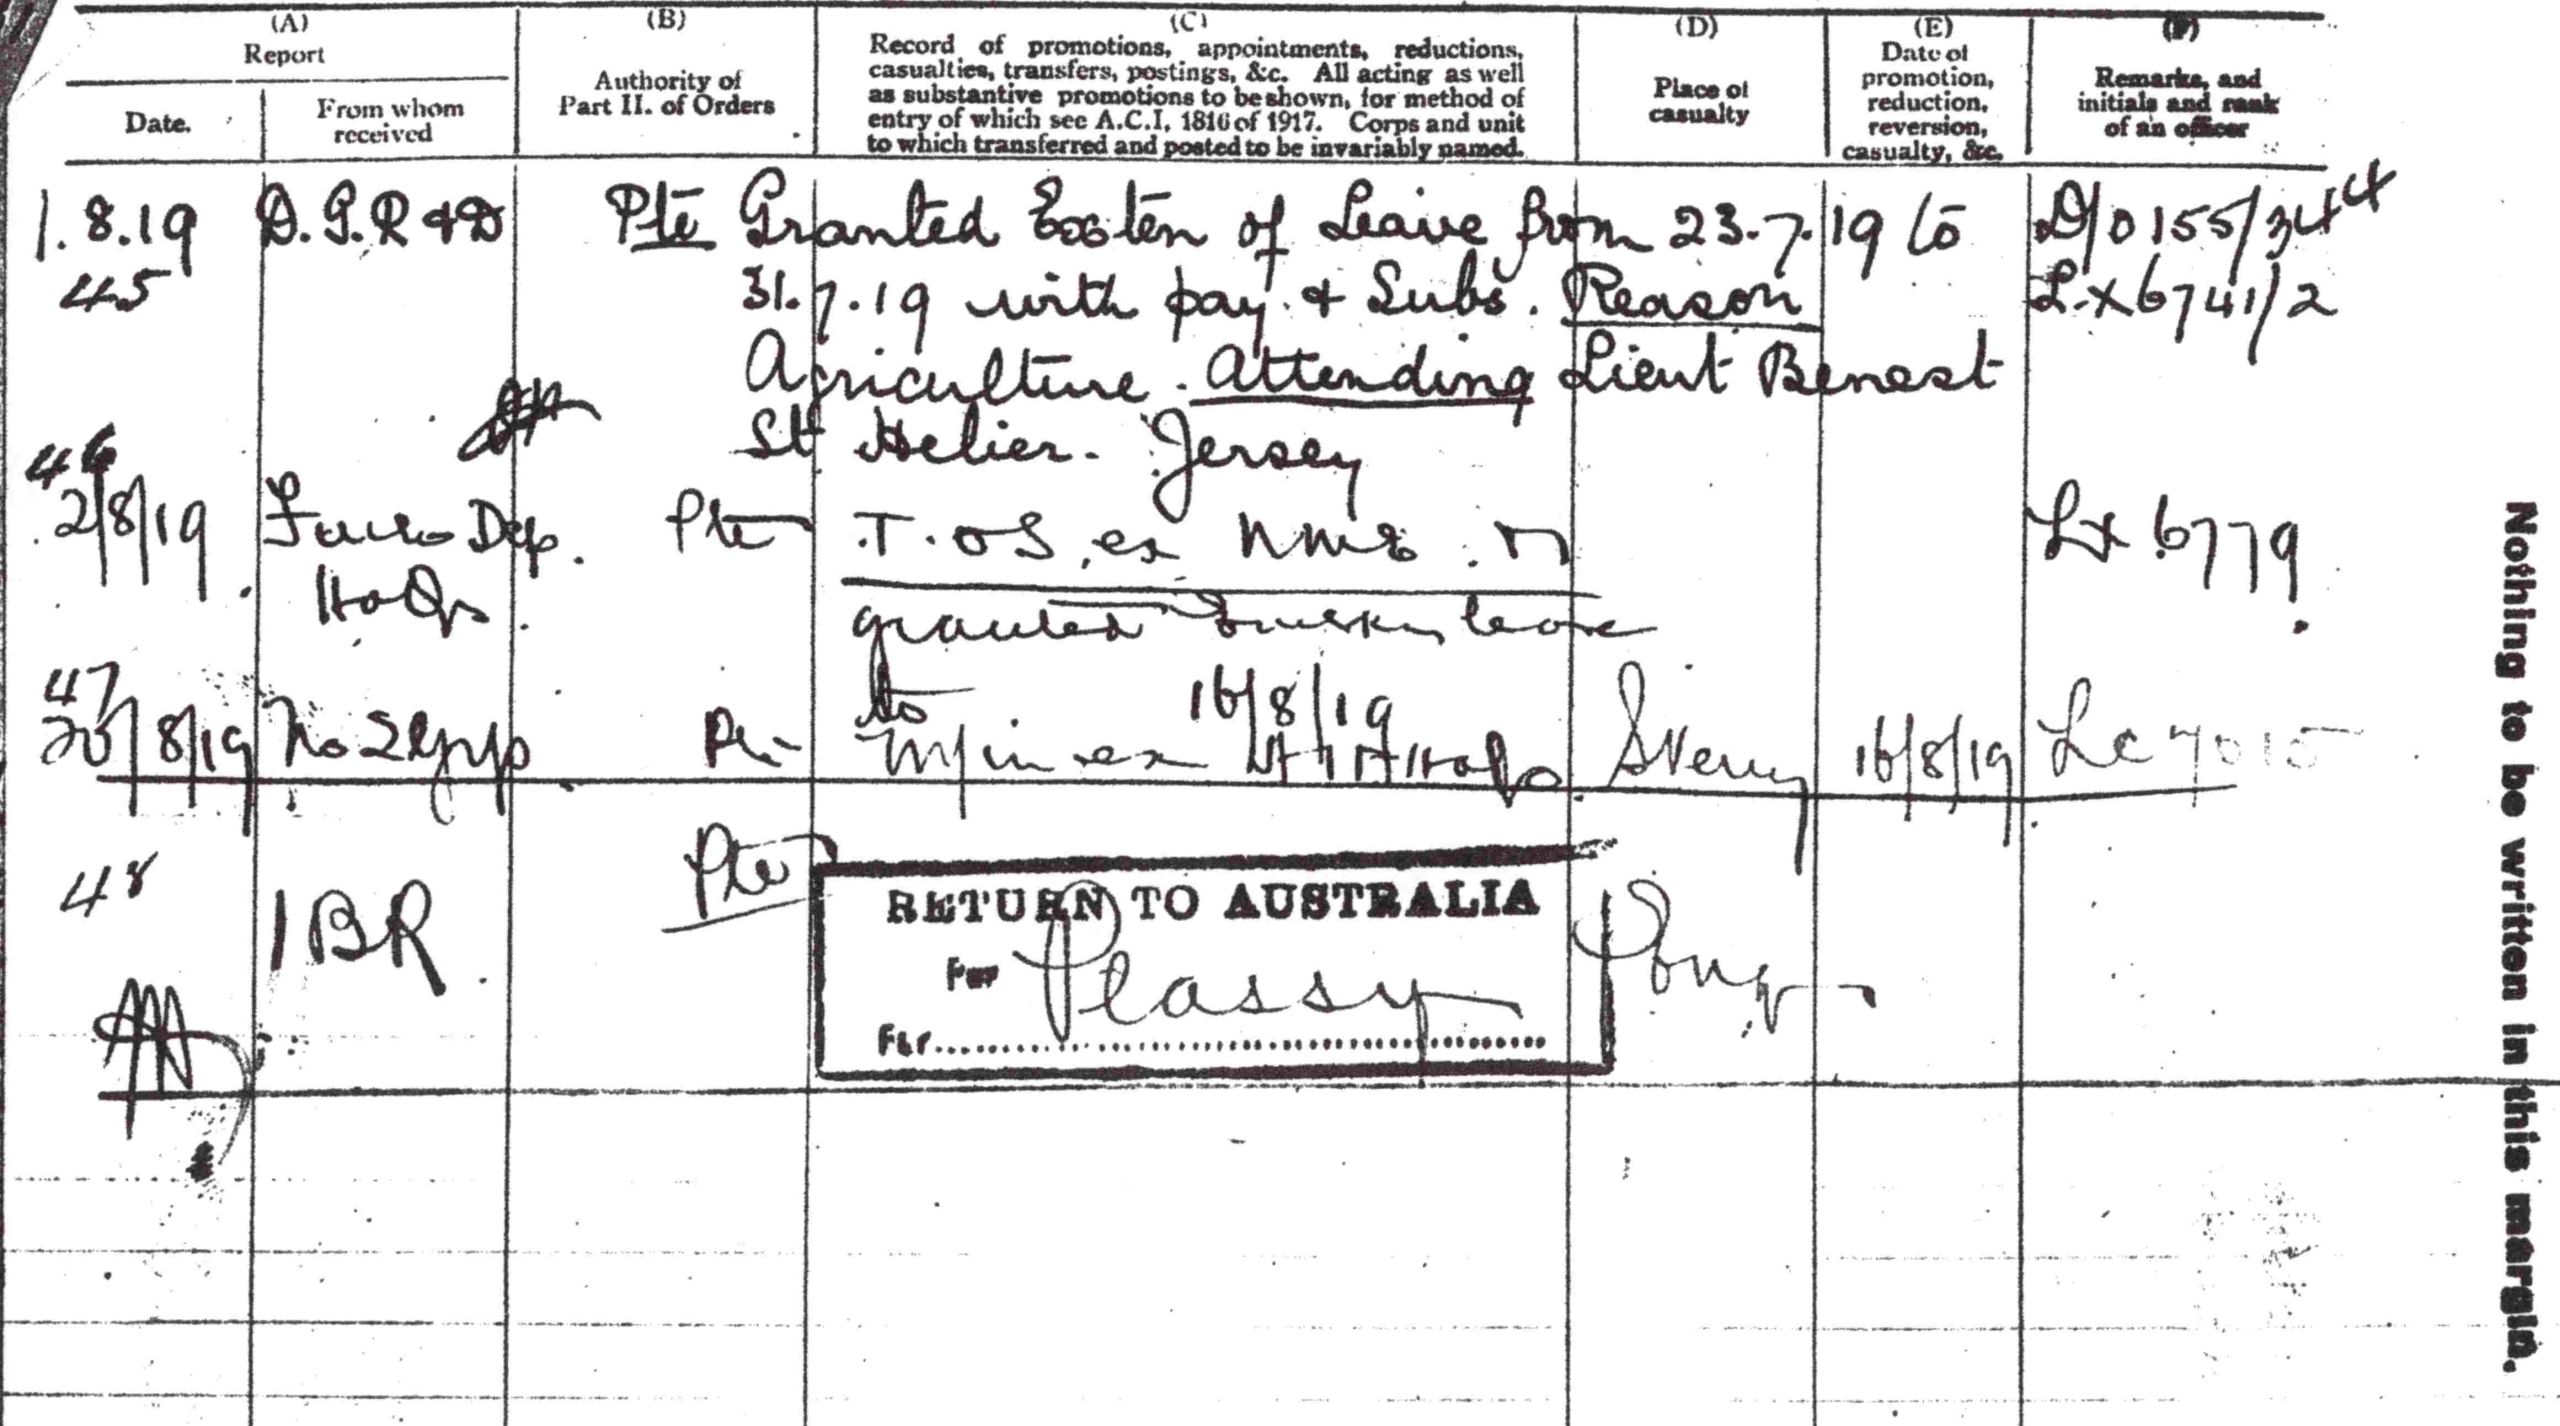 (A) (B) (C) (D) (E) (F)
Report
Date.
From whom
received
Authority of
Part II. of Orders
Record of promotions, appointments, reductions,
casualties, transfers, postings, &c. All acting as well
as substantive promotions to be shown, for method of
entry of which see A.C.I. 1816 of 1917. Corps and unit
to which transferred and posted to be invariably named.
Place of
casualty
Date of
promotion,
reduction,
reversion,
casualty, &c.
Remarks, and
initials and rank
of an officer
1.8.19 D.G.R & D Pte Granted Exten of Leave from 23.7.19 to D/0155/344
45 31.7.19 with pay & Subs. Reason LX6741/2
Agriculture. Attending Lieut Benest
St Helier. Jersey
46
2/8/19 Dep. Pte T.O.S. ex LX 6779
HdQrs granted leave
to 16/8/19
47
20/8/19 No 2 Pte M/in ex HdQrs 16/8/19 LC 7015
48 1BR Pte RETURN TO AUSTRALIA
Per Plassy
For
Nothing to be written in this margin.